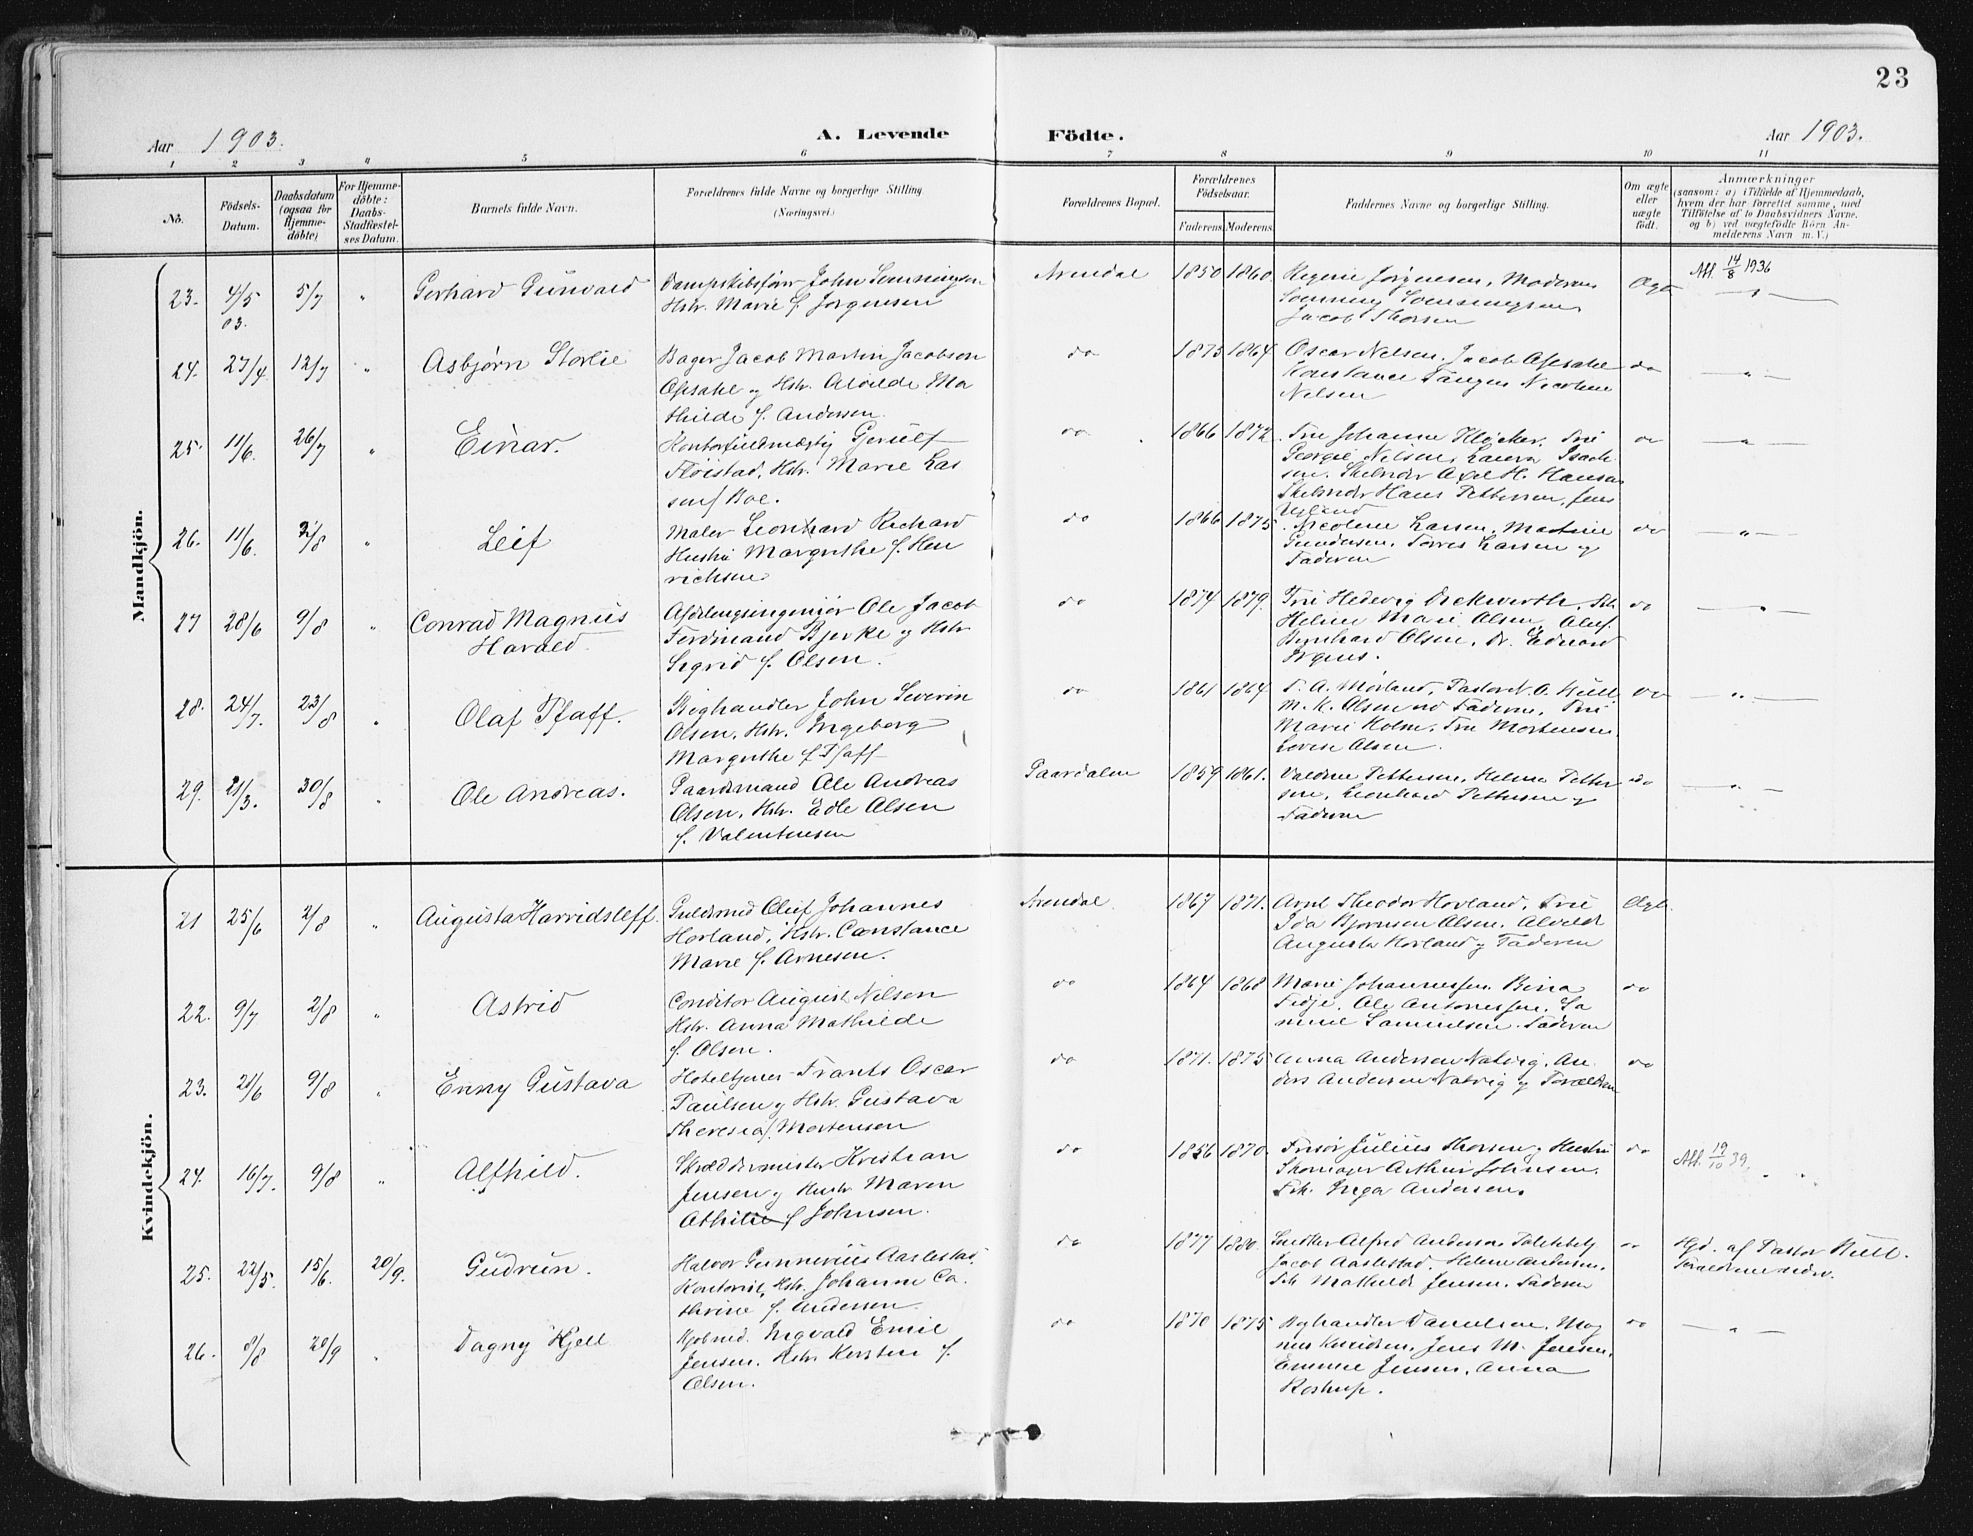 23
Aar 1903.
A. Levende Födte.
Aar 1903.
1 2 3 4 5 6 7 8 9 10 11
No.
Födsels-
Datum.
Daabsdatum
(ogsaa for
Hjemme-
döbte)
For Hjemme-
döbte:
Daabs-
Stadfæstel-
ses Datum.
Barnets fulde Navn.
Forældrenes fulde Navne og borgerlige Stilling
(Næringsvei.)
Forældrenes Bopæl.
Forældrenes
Födselsaar.
Faderens Moderens
Faddernes Navne og borgerlige Stilling.
Om ægte
eller
uægte
födt.
Anmærkninger
(saasom: a) i Tilfælde af Hjemmedaab,
hvem der har forrettet samme, med
Tilföielse af to Daabsvidners Navne,
og b) ved uægtefödte Börn An-
melderens Navn m. V.)
Mandkjön.
23. 4/5 03. 5/7 " Gerhard Gunvald
John
Hstr. Marie f. Jørgensen
Arendal 1850 1860
Jørgensen, Moderen
Jacob Thorsen
Ægte
Att. 14/8 1936
24. 27/4 12/7 " Asbjørn Storlie
Bager Jacob Martin Jacobson
Hstr. Alvilde Ma
thilde f. Andersen.
do 1875 1864
Oscar Nelsen, Jacob
Konstance Tangen Nicoline
Nelsen
do
25. 11/6. 26/7 " Einar.
Kontorfuldmægtig
Fløistad, Hstr. Marie Las
sen f. Boe.
do 1866 1872.
Fru Johanne Kløcker, Fru
Georgie Nelsen, Laura Isach
sen, Axel H. Hansen
Hans Pettersen, Jens
do
26. 11/6. 2/8 " Leif
Maler Leonhard Richard
Hustru Margrethe f. Hen
richsen
do 1866 1875
Nicoline Larsen, Martine
Gundersen, Torres Larsen og
Faderen
do
27 28/6 9/8 " Conrad Magnus
Harald.
Afdelingsingeniør Ole Jacob
Ferdinand Bjerke og Hstr
Sigrid f. Olsen.
do 1874 1879.
Fru Hedevig
Helene Marie Olsen, Oluf
Bernhard Olsen, Dr. Edvard
do
28. 24/7. 23/8 " Olaf Pfaff.
Boghandler John Severin
Olsen, Hstr. Ingeborg
Margrethe f. Pfaff
do 1861 1864.
A. Mørland, Pastor
M. K. Olsen Faderen, Fru
Marie Holm, Fru Mortensen
Lovise Olsen.
do
29. 21/3. 30/8 " Ole Andreas.
Gaardmand Ole Andreas
Olsen, Hstr. Edle Olsen
f. Valentinsen
Gaardalen 1859 1861.
Valdine Pettersen, Helene Petter
sen, Leonhard Pettersen og
Faderen
do
Kvindekjön.
21 25/6 2/8 " Augusta Harridsleff.
Guldsmed Oluf Johannes
Horland, Hstr. Constance
Marie f. Arnesen.
Arendal 1867 1871.
Arne Theodor Horland, Fru
Ida Bjornsen Olsen, Alvilde
Augusta Horland og Faderen
Ægte
22. 9/7 2/8 " Astrid
Conditor August Nelson
Hstr. Anna Mathilde
f. Olsen.
do 1864 1868
Marie Johannessen, Bina
Fidje, Ole Antonessen, Sa
muel Samuelsen. Faderen
do
23. 21/6 9/8 " Enny Gustava
Hoteltjener Frants Oscar
Paulsen og Hstr. Gustava
Theresia f. Mortensen
do 1871. 1875
Anna Andersen Natvig, An
ders Andersen Natvig og Forældrene
do
24. 16/7. 9/8 " Alfhild.
Skræddermester Kristian
Jensen og Hustr Maren
Athilie f. Johnsen.
do 1856 1870.
Frisør Julius Thorsen og Hustru
Skomager Arthur Johnsen,
Frk. Inga Andersen.
do
Att. 19/10 39.
25. 22/5. 15/6. 20/9. Gudrun.
Halvor Gunnerius Aarlestad,
Kontorist, Hstr. Johanne Ca
thrine f. Andersen.
do 1877 1880.
Snedker Alfred Andersen
Jacob Aarlestad, Helene Andersen,
Frk. Mathilde Jensen, Faderen
do
Hjd. af Pastor Kull.
26. 8/8 20/9 " Dagny Kjell
Kjøbmd. Ingvald Emil
Jensen, Hstr. Kirsten f.
Olsen.
do 1870 1875
Boghandler Danielsen, Mag
nus Knudsen, Jens M. Jensen,
Emmeli Jensen, Anna
Rostrup.
do